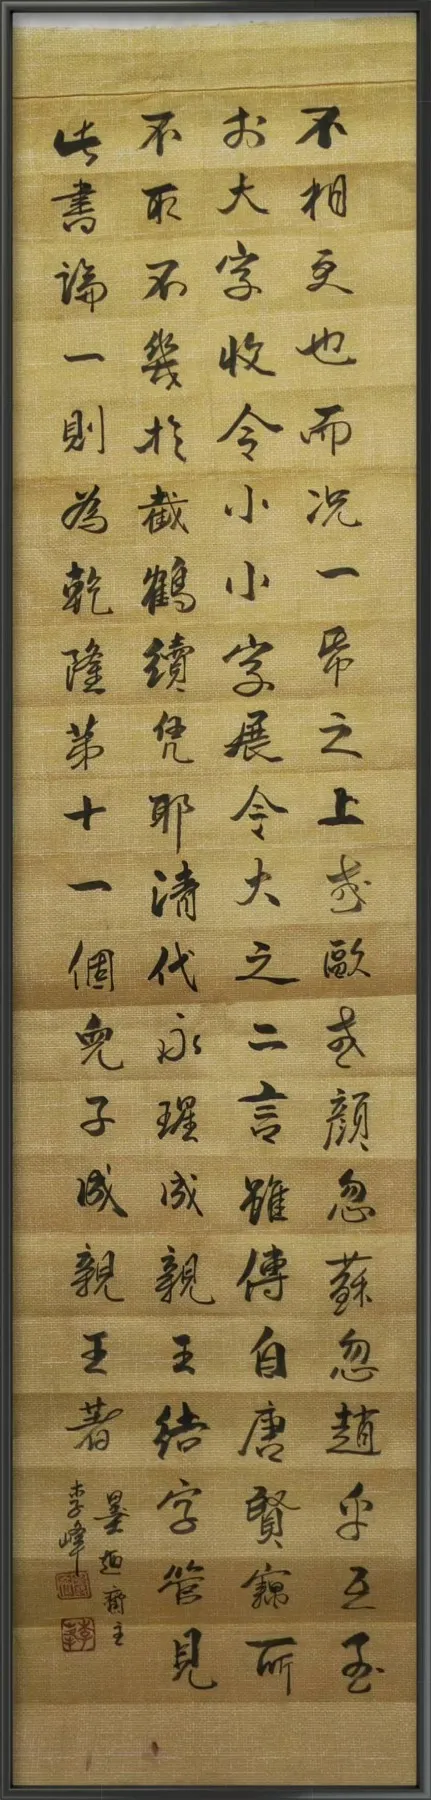 不相及也而况一帋之上或歐或顔忽蘇忽趙乎五至
扵大字收令小小字展令大之二言雖傳自唐賢竊所
不取不幾扵截鶴續凫耶清代永瑆成親王結字管見
此書論一則為乾隆第十一個兒子成親王著
墨趣齋主
李峰